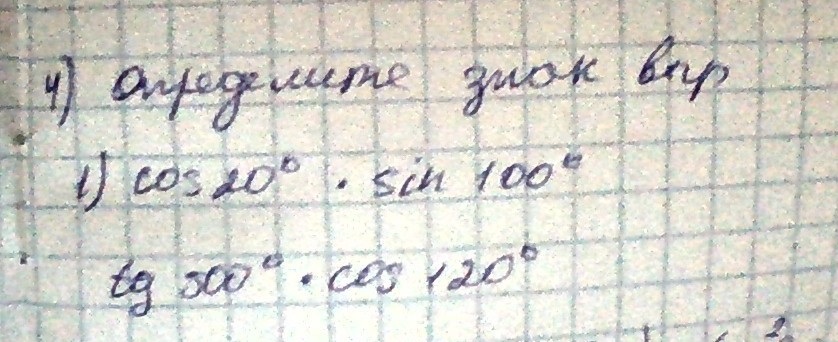 4) Определите знак выр
1) cos 20° · sin 100°
tg 300° · cos 120°